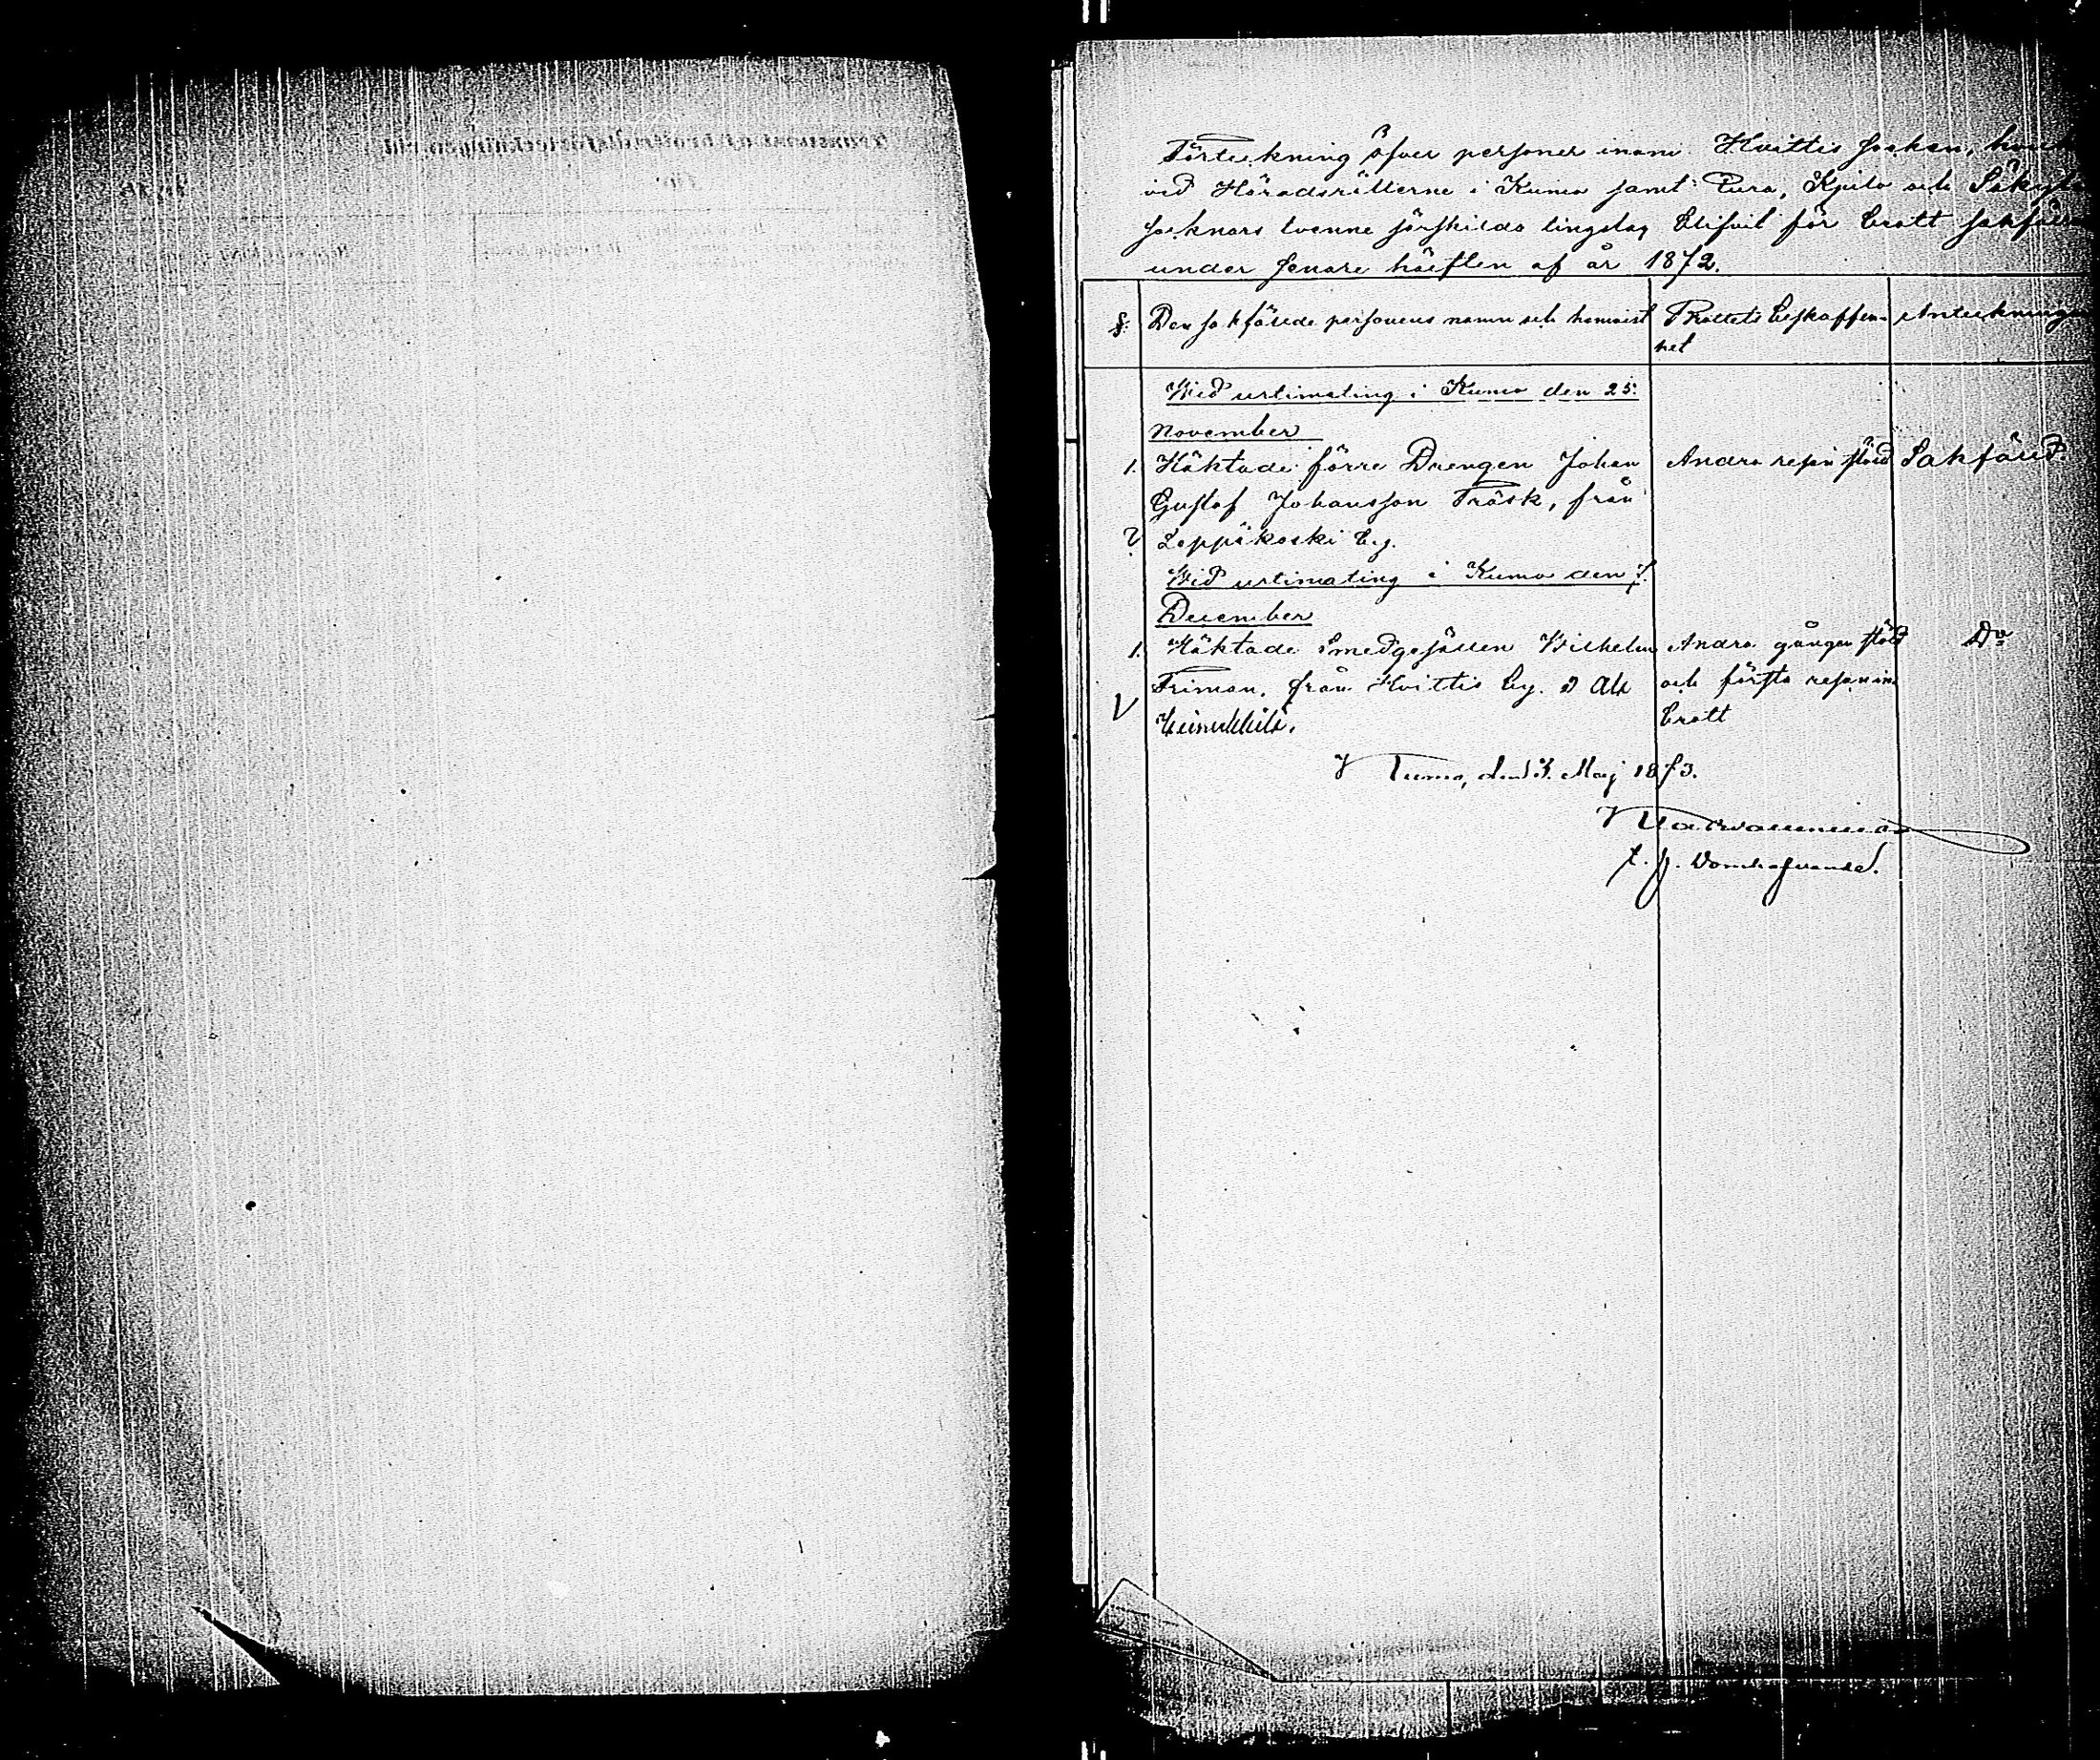 Förteckning öfver personer inom Hvittis socken,
vid Häradsrätterne i Kumo samt Eura, Kjulo och Säkylä
socknars tvenne särskilda tingslag blifvit för brott sakfälde
under senare hälften af år 1872.
§. Den sakfälde personens namn och hemvist Brottets beskaffen- Anteckningar
het
Wid urtimating i Kumo den 25.
November
1. Häktade förre Drengen Johan Andra resan stöld Sakfäld
Gustaf Johansson Träsk, från
Leppäkoski by.
Wid urtimating i Kumo den 7.
December
1. Häktade Smedgesällen Wilhelm Andra gången stöld Do
Friman, från Hvittis by. och första resan in-
brott
Kumo, den 3. Maj 1873.
t. f. Domhafvande.